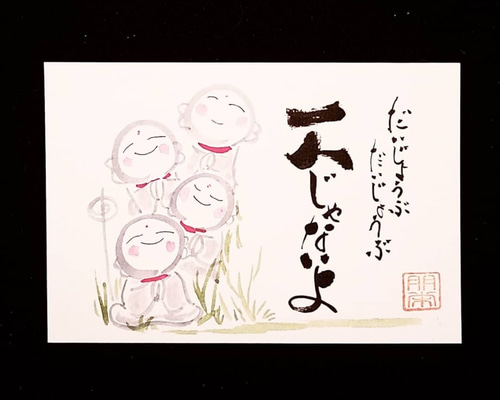 だいじょうぶ
だいじょうぶ
一人じゃないよ